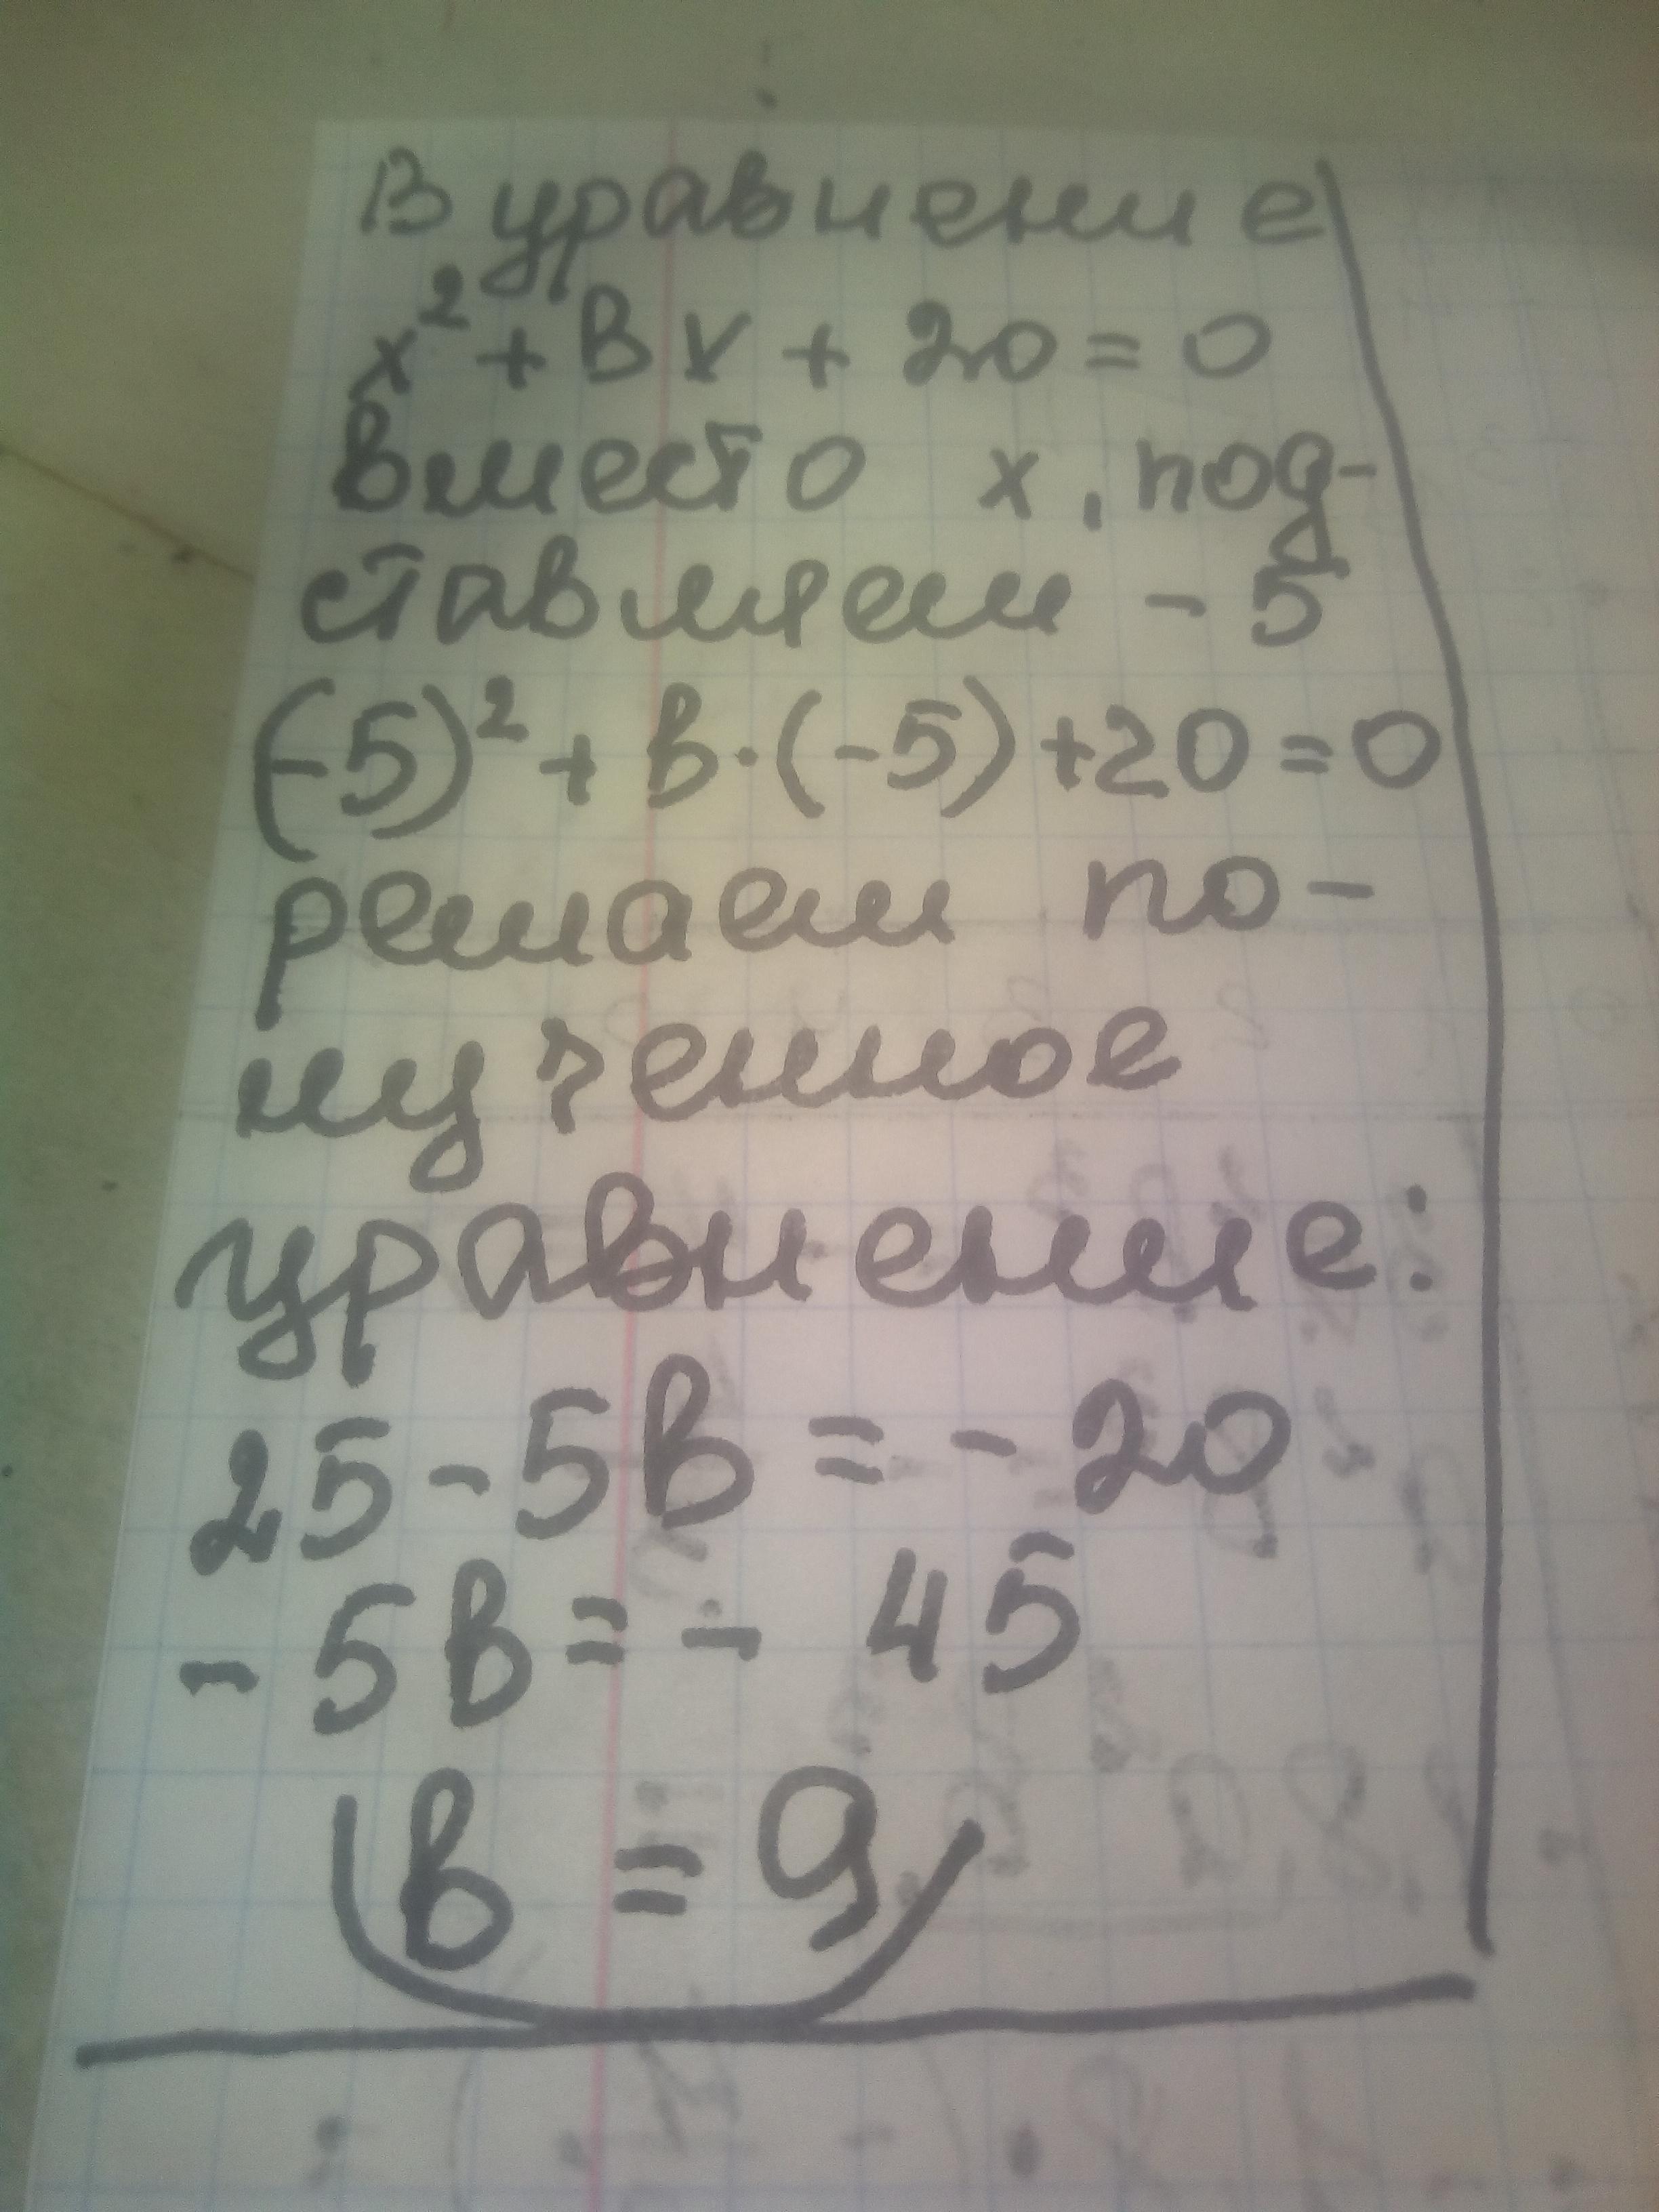 В уравнение
x² + вx + 20 = 0
вместо x, под-
ставляем - 5
(-5)² + в·(-5) +20 = 0
решаем по-
лученное
уравнение:
25 - 5в = - 20
- 5в = - 45
в = 9